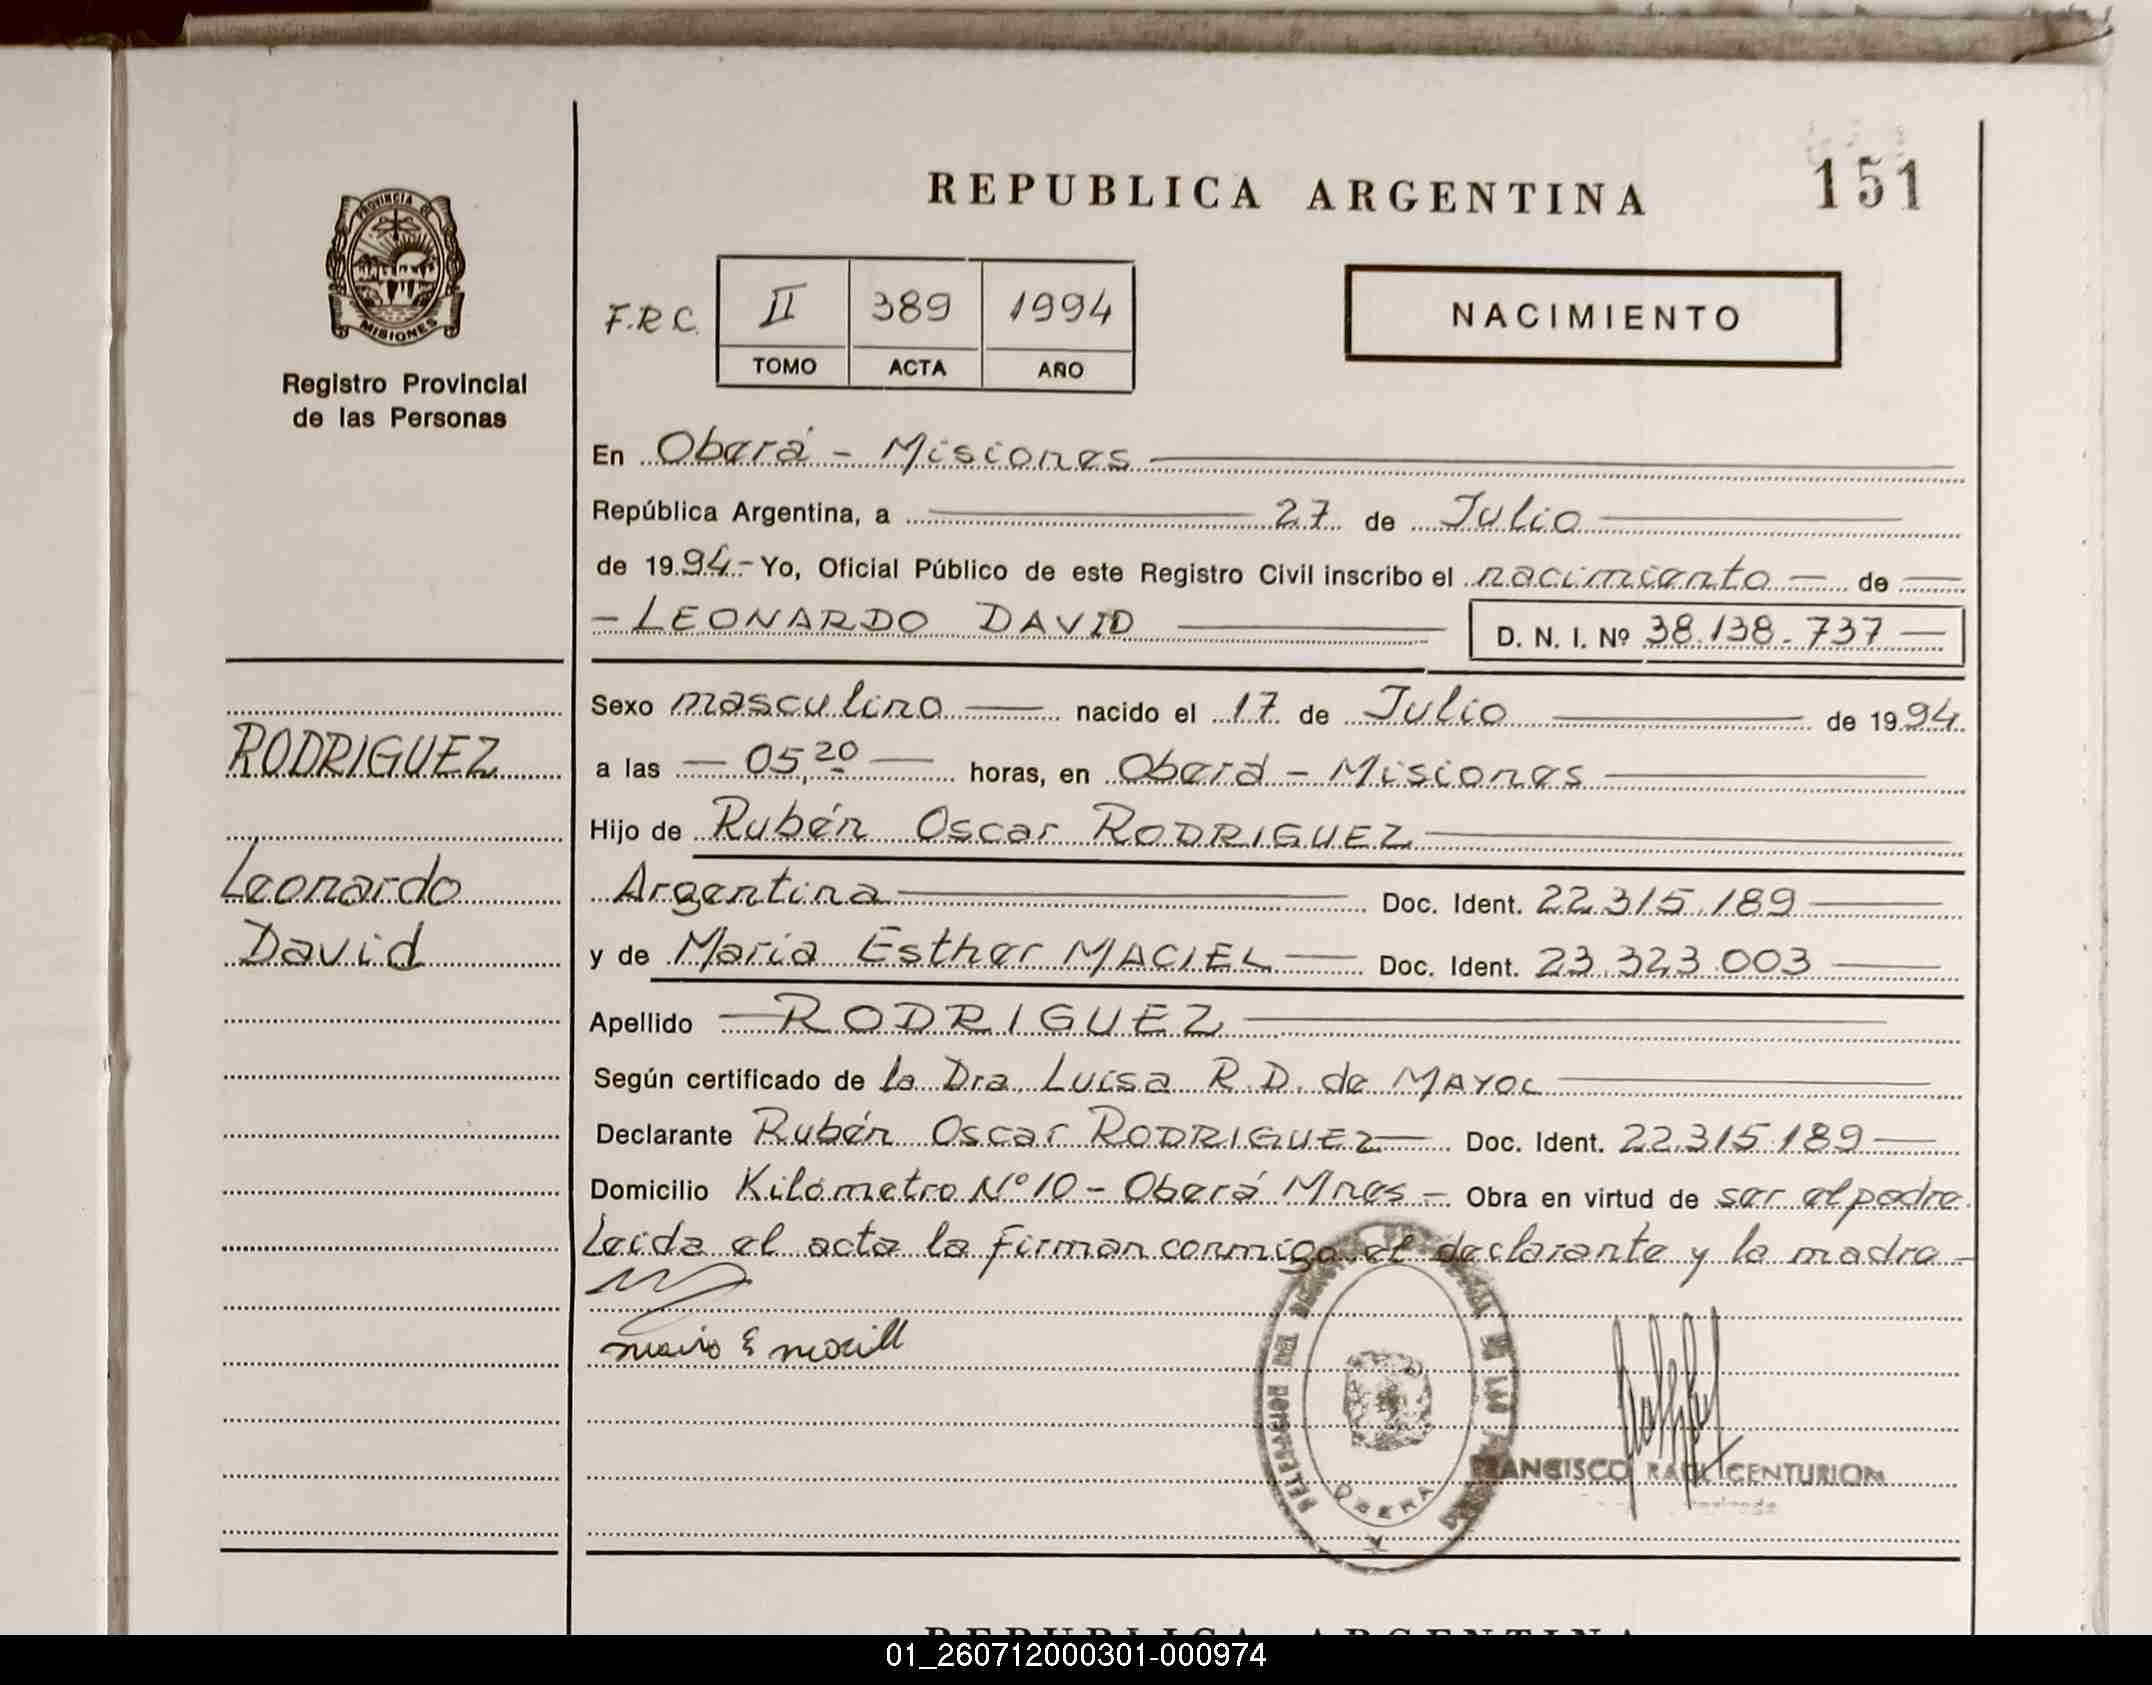 REPUBLICA ARGENTINA
151
PROVINCIA DE
MISIONES
Registro Provincial
de las Personas
F.R.C. II 389 1994
TOMO ACTA AÑO
NACIMIENTO
En Oberá - Misiones
República Argentina, a 27 de Julio
de 1994.- Yo, Oficial Público de este Registro Civil inscribo el nacimiento - de
- LEONARDO DAVID D. N. I. Nº 38.138.737
Sexo masculino nacido el 17 de Julio de 1994.
a las - 05,20 - horas, en Oberá - Misiones
Hijo de Rubén Oscar RODRIGUEZ
Argentina Doc. Ident. 22.315.189
y de Maria Esther MACIEL Doc. Ident. 23.323.003
Apellido RODRIGUEZ
Según certificado de la Dra. Luisa R.D. de MAYOL
Declarante Rubén Oscar RODRIGUEZ Doc. Ident. 22.315.189
Domicilio Kilómetro Nº 10 - Oberá Mnes - Obra en virtud de ser el padre.
Leida el acta la firman conmigo el declarante y la madre -
RODRIGUEZ
Leonardo
David
OBERA
FRANCISCO RAUL CENTURION
REPUBLICA ARGENTINA
01_260712000301-000974